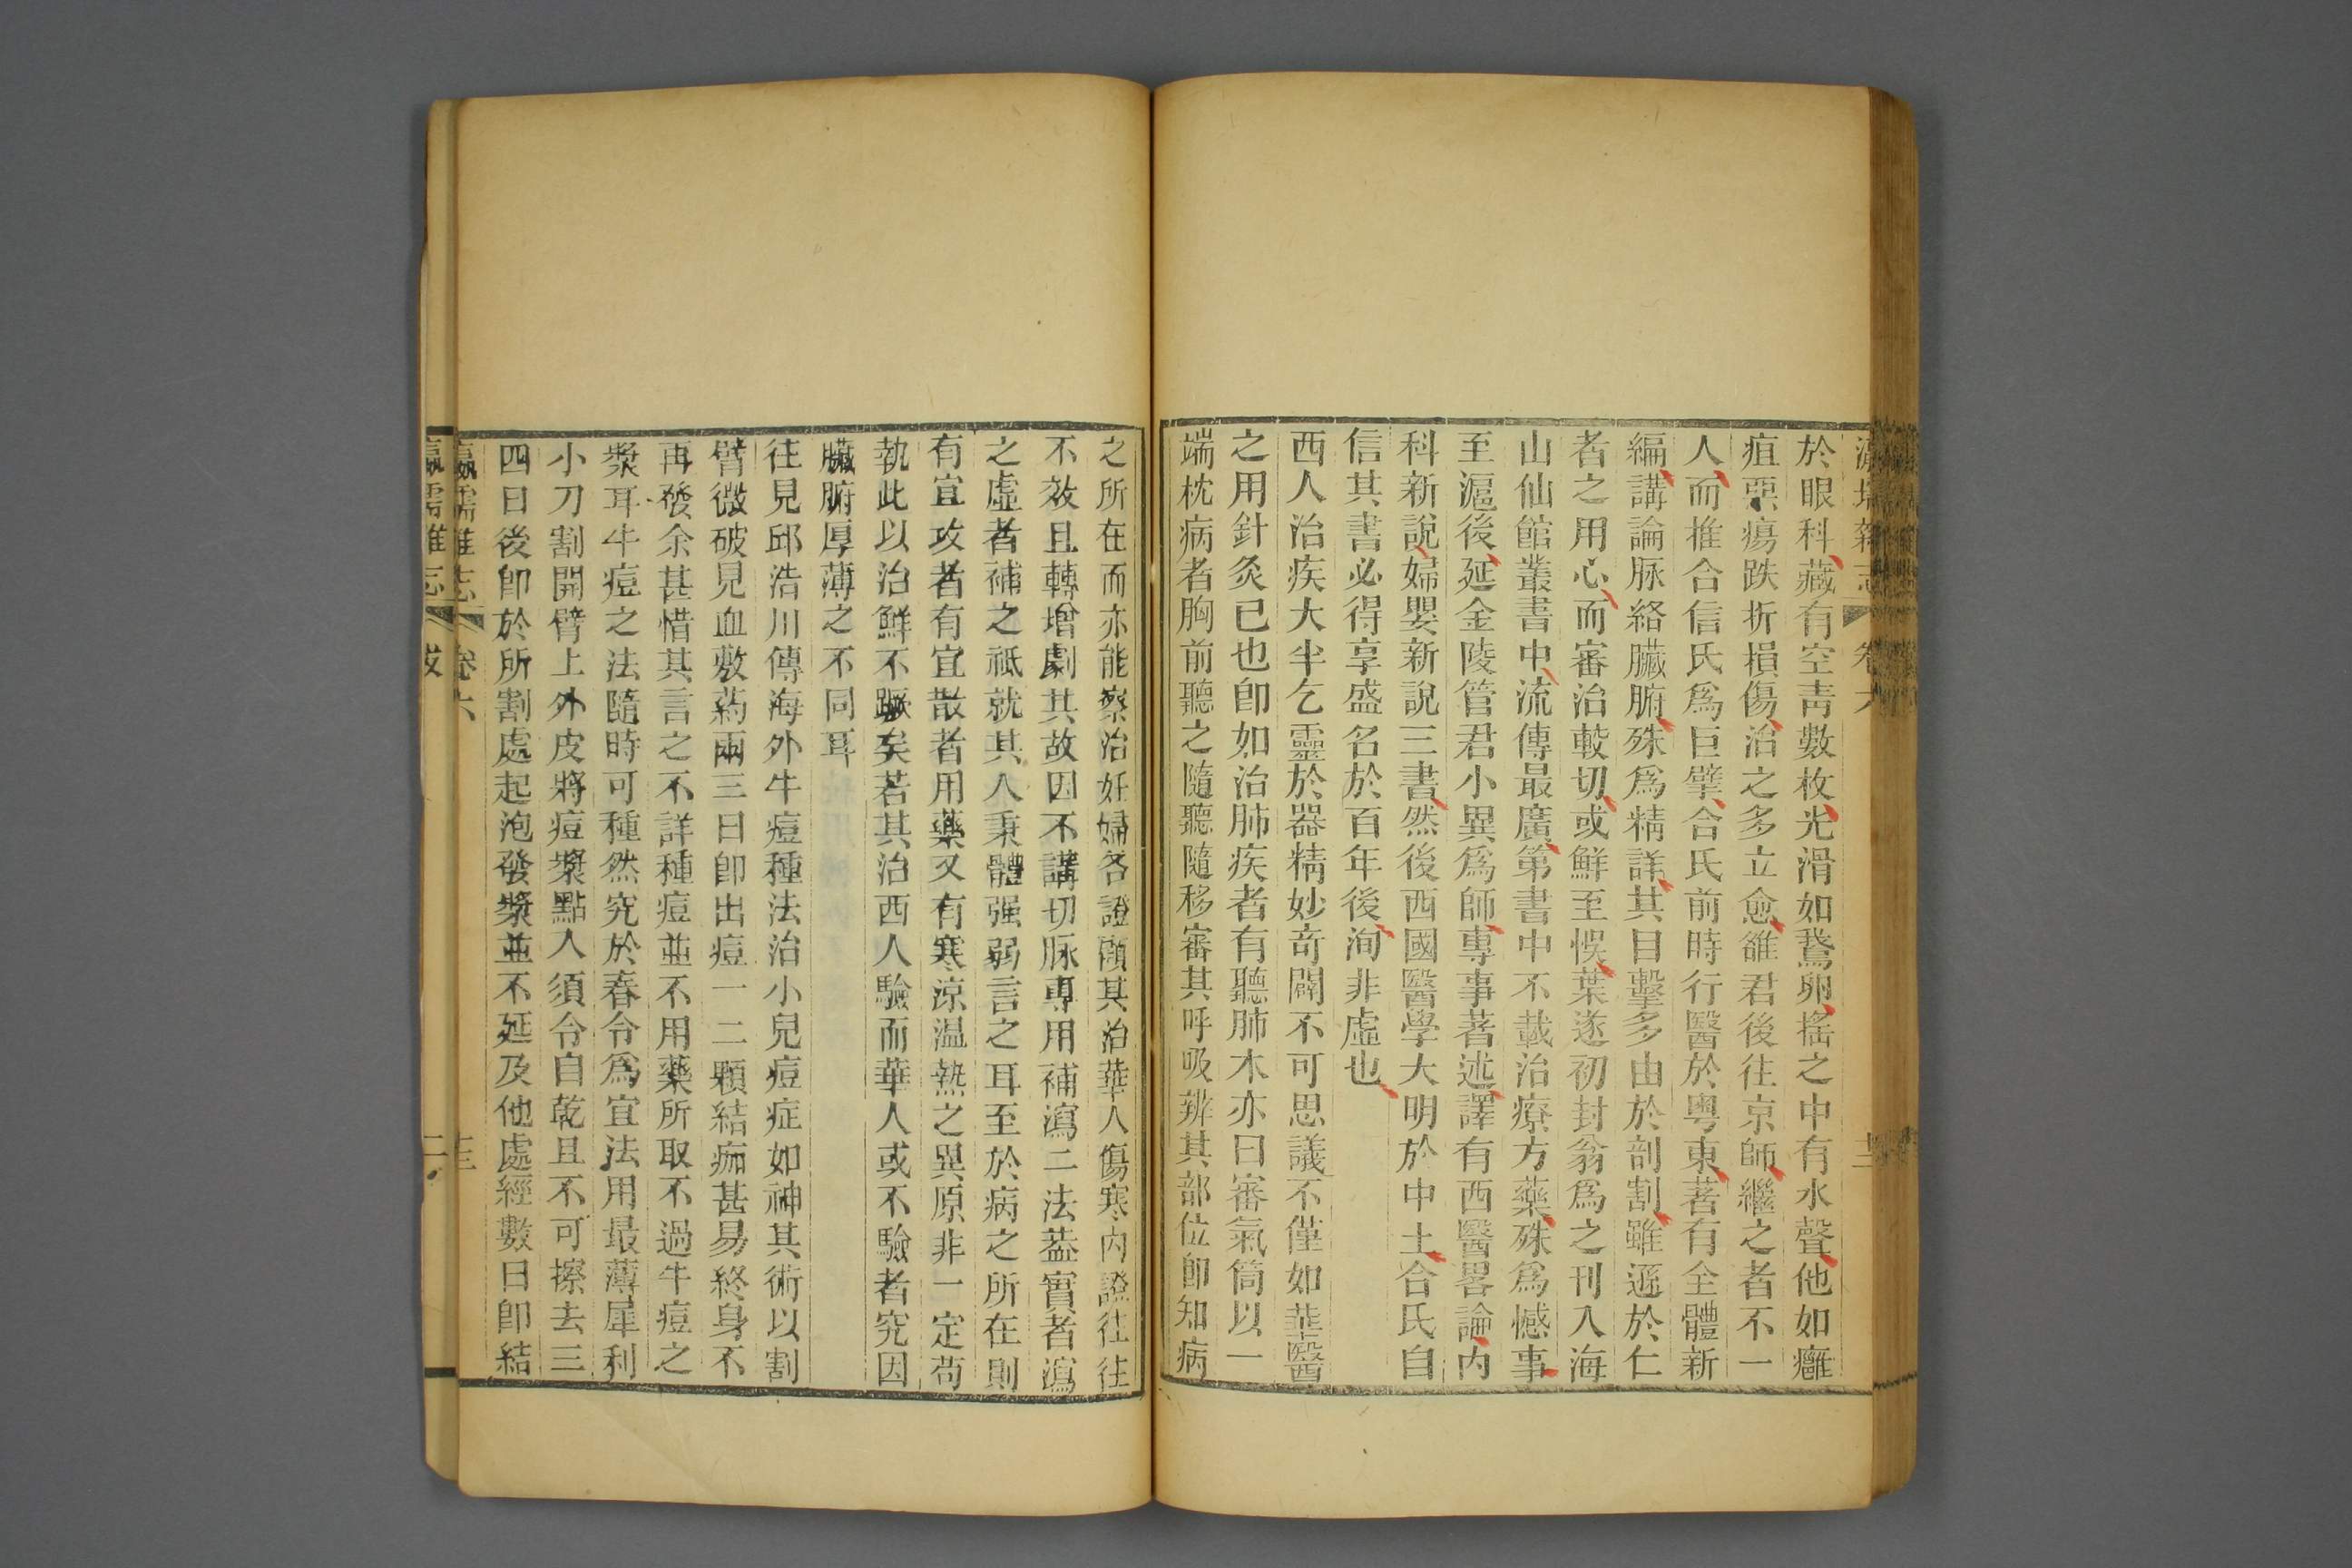 瀛壖雜志　卷六　十二
於眼科藏有空靑數枚光滑如鵞卵搖之中有水聲他如癰
疽惡瘍跌折損傷治之多立愈雒君後往京師繼之者不一
人而推合信氏爲巨擘合氏前時行醫於粤東著有全體新
編講論脉絡臟腑殊爲精詳其目擊多由於剖割雖遜於仁
者之用心而審治較切或鮮至悞葉遂初封翁爲之刊入海
山仙館叢書中流傳最廣第書中不載治療方藥殊爲憾事
至滬後延金陵管君小異爲師專事著述譯有西醫畧論內
科新說婦嬰新說三書然後西國醫學大明於中土合氏自
信其書必得享盛名於百年後洵非虛也
西人治疾大半乞靈於器精妙竒闢不可思議不僅如華醫
之用針灸已也卽如治肺疾者有聽肺木亦曰審氣筒以一
端枕病者胸前聽之隨聽隨移審其呼吸辨其部位卽知病
之所在而亦能察治妊婦各證顧其治華人傷寒内證往往
不效且轉增劇其故因不講切脉專用補瀉二法葢實者瀉
之虛者補之祗就其人秉體强弱言之耳至於病之所在則
有宜攻者有宜散者用藥又有寒涼温熱之異原非一定苟
執此以治鮮不蹶矣若其治西人驗而華人或不驗者究因
臟腑厚薄之不同耳
往見邱浩川傳海外牛痘種法治小兒痘症如神其術以割
臂微破見血敷葯兩三日卽出痘一二顆結痂甚易終身不
再發余甚惜其言之不詳種痘並不用藥所取不過牛痘之
漿耳牛痘之法隨時可種然究於春令爲宜法用最薄犀利
小刀割開臂上外皮將痘漿點入須令自乾且不可擦去三
四日後卽於所割處起泡發漿並不延及他處經數日卽結
瀛壖雜志　卷六　十三
瀛壖雜志　跋　二